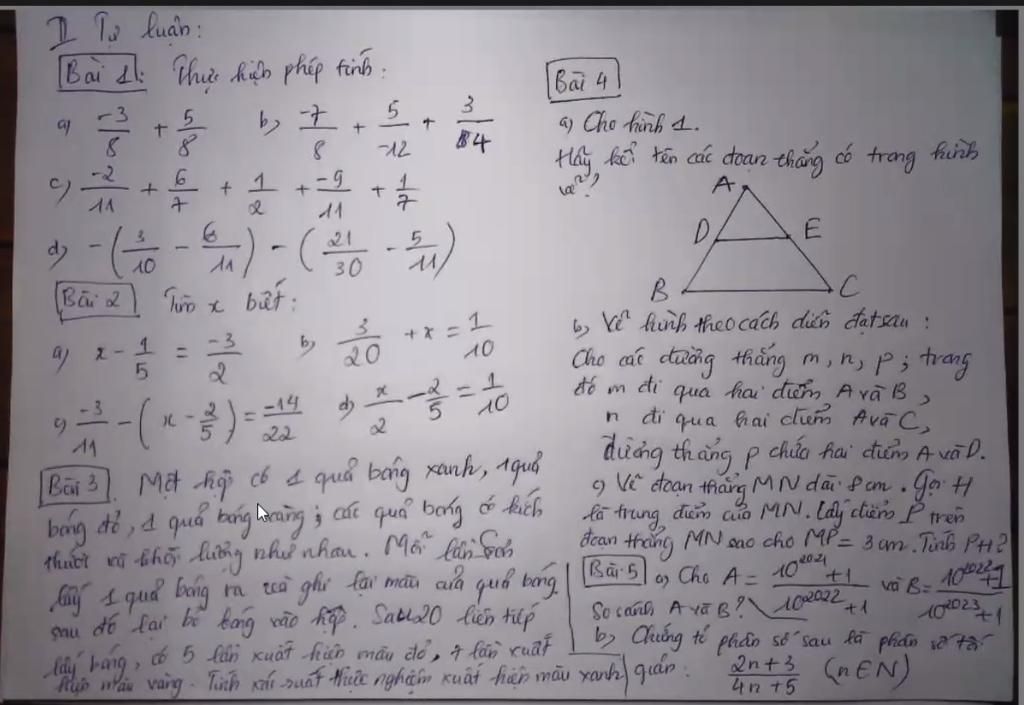 II Tự luận:
Bài 1: Thực hiện phép tính:
a) -3/8 + 5/8 b) -7/8 + 5/-12 + 3/4
c) -2/11 + 6/7 + 1/2 + -9/11 + 1/7
d) -(3/10 - 6/11) - (21/30 - 5/11)
Bài 2 Tìm x biết:
a) x - 1/5 = -3/2 b) 3/20 + x = 1/10
c) -3/11 - (x - 2/5) = -14/22 d) x/2 - 2/5 = 1/10
Bài 3. Một hộp có 1 quả bóng xanh, 1 quả
bóng đỏ, 1 quả bóng vàng; các quả bóng có kích
thước và khối lượng như nhau. Mỗi lần Sơn
lấy 1 quả bóng ra và ghi lại màu của quả bóng.
sau đó lại bỏ bóng vào hộp. Sau 20 liên tiếp
lấy bóng, có 5 lần xuất hiện màu đỏ, lần xuất
hiện màu vàng. Tính xác suất thực nghiệm xuất hiện màu xanh
Bài 4
a) Cho hình 1.
Hãy kể tên các đoạn thẳng có trong hình
vẽ?
A
D E
B C
b, Vẽ hình theo cách diễn đạt sau:
Cho các đường thẳng m, n, p; trong
đó m đi qua hai điểm A và B,
n đi qua hai điểm A và C,
đường thẳng p chứa hai điểm A và D.
c) Vẽ đoạn thẳng MN dài 8 cm. Gọi H
là trung điểm của MN. Lấy điểm P trên
đoạn thẳng MN sao cho MP = 3 cm. Tính PH?
Bài 5 a) Cho A = 10^2021 + 1 / 10^2022 + 1 và B = 10^2022 + 1 / 10^2023 + 1
So sánh A và B?
b) Chứng tỏ phân số sau là phân số tối
giản: 2n + 3 / 4n + 5 (n ∈ N)